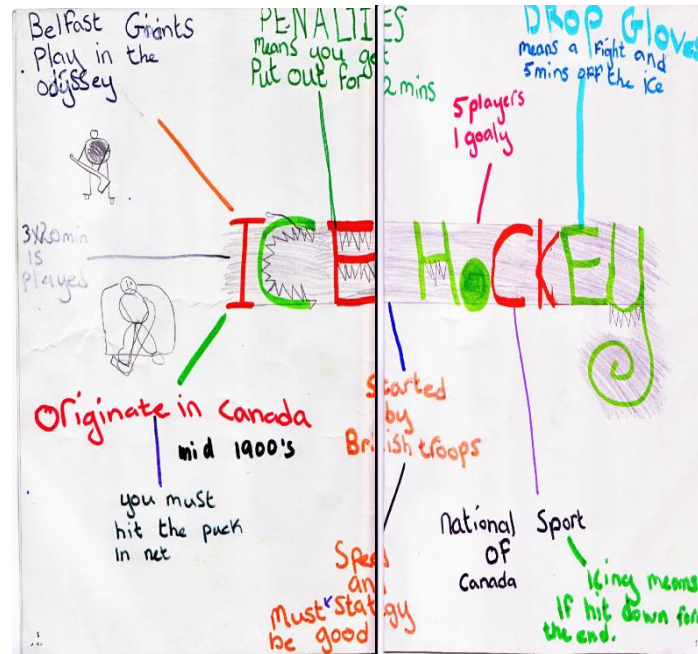 Belfast Giants
Play in the
Odyssey
PENALTIES
means you get
Put out for 2 mins
DROP Gloves
means a Fight and
5 mins off the ice
5 players
1 goaly
3x20min
is
played
ICE HOCKEY
Originate in Canada
mid 1900's
you must
hit the puck
In net
Started
by
British troops
Speed
and
Must Stategy
be good
National Sport
OF
Canada
Icing means
If hit down for
the end.